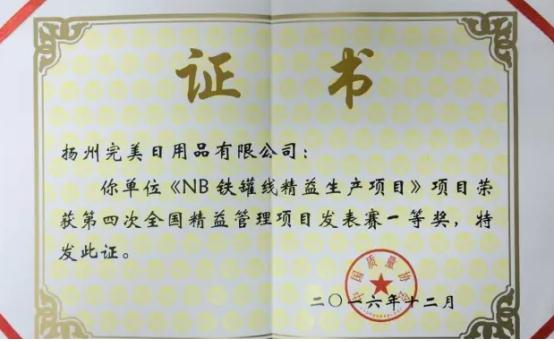 证书
扬州完美日用品有限公司：
你单位《NB铁罐线精益生产项目》项目荣
获第四次全国精益管理项目发表赛一等奖，特
发此证。
中国质量协会
二〇一六年十二月